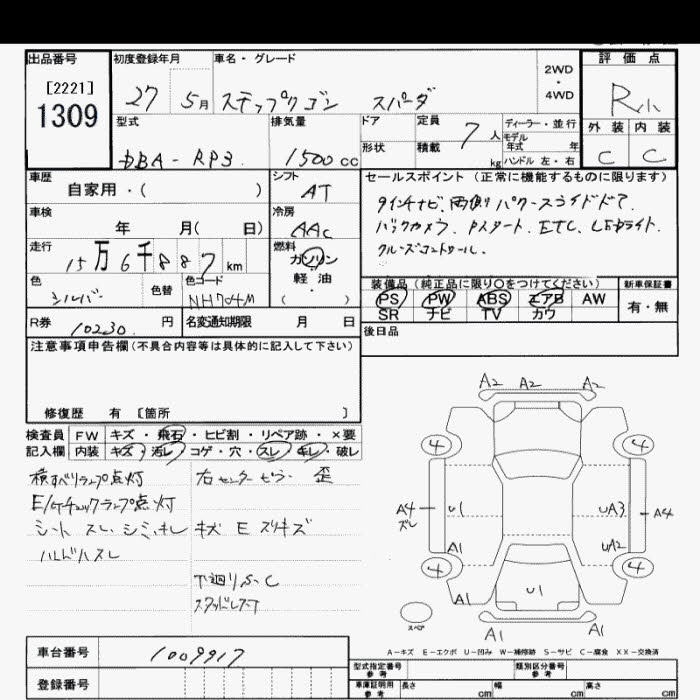 出品番号 初度登録年月 車名・グレード 評価点
[2221]
1309
27 5月 ステップワゴン スパーダ
2WD
・
4WD
R小
型式 排気量 ドア 定員 7人 ディーラー・並行
モデル
年式 年
形状 積載 kg ハンドル 左・右
外装 内装
C C
DBA-RP3 1500cc
車歴 シフト セールスポイント(正常に機能するものに限ります)
自家用・( ) AT
9インチナビ、両側パワースライドドア、
車検 冷房
年 月( 日) AAC
バックカメラ、Pスタート、ETC、LEDライト
クルーズコントロール、
走行 燃料
15万6千887km ガソリン
軽油
・
( )
色 色替 色コード
シルバー NH704M
装備品(純正品に限り○をつけてください) 新車保証書
PS PW ABS エアB AW 有・無
SR ナビ TV カワ
R券 10230 円 名変通知期限 月 日
後日品
注意事項申告欄(不具合内容等は具体的に記入して下さい)
修復歴 有 [箇所 ]
検査員 FW キズ・飛石・ヒビ割・リペア跡・×要
記入欄 内装 キズ・汚レ・コゲ・穴・スレ・キレ・破レ
横すべりランプ点灯 右センターピラー 歪
E/Gチェックランプ点灯
シート スレ シミ キレ キズ E スリキズ
ハンドルスレ
下廻りS、C
スタッドレス
A2 A2 A2
4 4
A4
ズレ
U1 UA3 A4
A1 UA2
4 4
A1 U1
スペア
A1 A1
A-キズ E-エクボ U-凹み W-補修跡 S-サビ C-腐食 XX-交換済
車台番号 1009917
登録番号
型式指定番号
参考
類別区分番号
参考
車庫証明用
参考
長さ cm 幅 cm 高さ cm